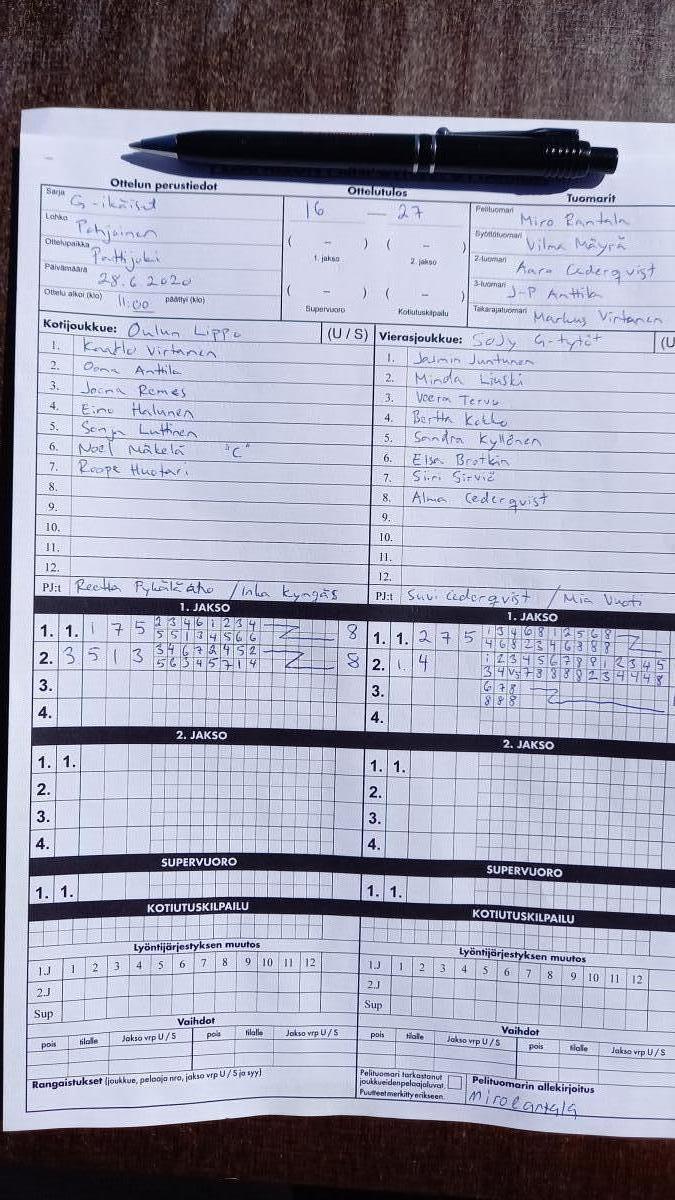 Ottelun perustiedot
Ottelutulos
Tuomarit
Sarja G-ikäiset
Lohko Pohjoinen
Ottelupaikka Pattijoki
Päivämäärä 28.6.2020
Ottelu alkoi (klo) 11:00 päättyi (klo)
16 — 27
( – ) ( – )
1. jakso 2. jakso
( – ) ( – )
Supervuoro Kotiutuskilpailu
Pelituomari Miro Rantala
Syöttötuomari Vilma Mäyrä
2-tuomari Aaro Cederqvist
3-tuomari J-P Anttila
Takarajatuomari Markus Virtanen
Kotijoukkue: Oulun Lippo (U / S)
1. Virtanen
2. Oona Anttila
3. Joona Remes
4. Eino Halunen
5. Sonja Luttinen
6. Noel Mäkelä "C"
7. Roope Huotari
8.
9.
10.
11.
12.
PJ:t Reetta / Inka Kyngäs
Vierasjoukkue: SoJy G-tytöt (U
1. Jasmin Juntunen
2. Minda Liuski
3. Veera Tervo
4. Bertta Kokko
5. Sandra Kyllönen
6. Elsa Brotkin
7. Siiri Sirviö
8. Alma Cederqvist
9.
10.
11.
12.
PJ:t Suvi Cederqvist / Mia Vuoti
1. JAKSO
1. 1. 1 7 5 2 3 4 6 1 2 3 4 8
5 5 1 3 4 5 6 6
2. 3 5 1 3 3 4 6 7 2 4 5 2 8
5 6 3 4 5 7 1 4
3.
4.
1. JAKSO
1. 1. 2 7 5 1 3 4 6 8 1 2 5 6 8
4 6 8 2 3 4 6 8 8 8
2. 1. 4 1 2 3 4 5 6 7 8 8 1 2 3 4 5
3 4 5 7 8 8 8 8 2 3 4 4 4 8
3. 6 7 8
8 8 8
4.
2. JAKSO
1. 1.
2.
3.
4.
2. JAKSO
1. 1.
2.
3.
4.
SUPERVUORO
1. 1.
SUPERVUORO
1. 1.
KOTIUTUSKILPAILU
KOTIUTUSKILPAILU
Lyöntijärjestyksen muutos
1.J 1 2 3 4 5 6 7 8 9 10 11 12
2.J
Sup
Lyöntijärjestyksen muutos
1.J 1 2 3 4 5 6 7 8 9 10 11 12
2.J
Sup
Vaihdot
pois tilalle Jakso vrp U / S pois tilalle Jakso vrp U / S
Vaihdot
pois tilalle Jakso vrp U / S pois tilalle Jakso vrp U / S
Rangaistukset (joukkue, pelaaja nro, jakso vrp U / S ja syy)
Pelituomari tarkastanut
joukkueiden pelaajaluvat.
Puutteet merkitty erikseen.
Pelituomarin allekirjoitus
miro rantala